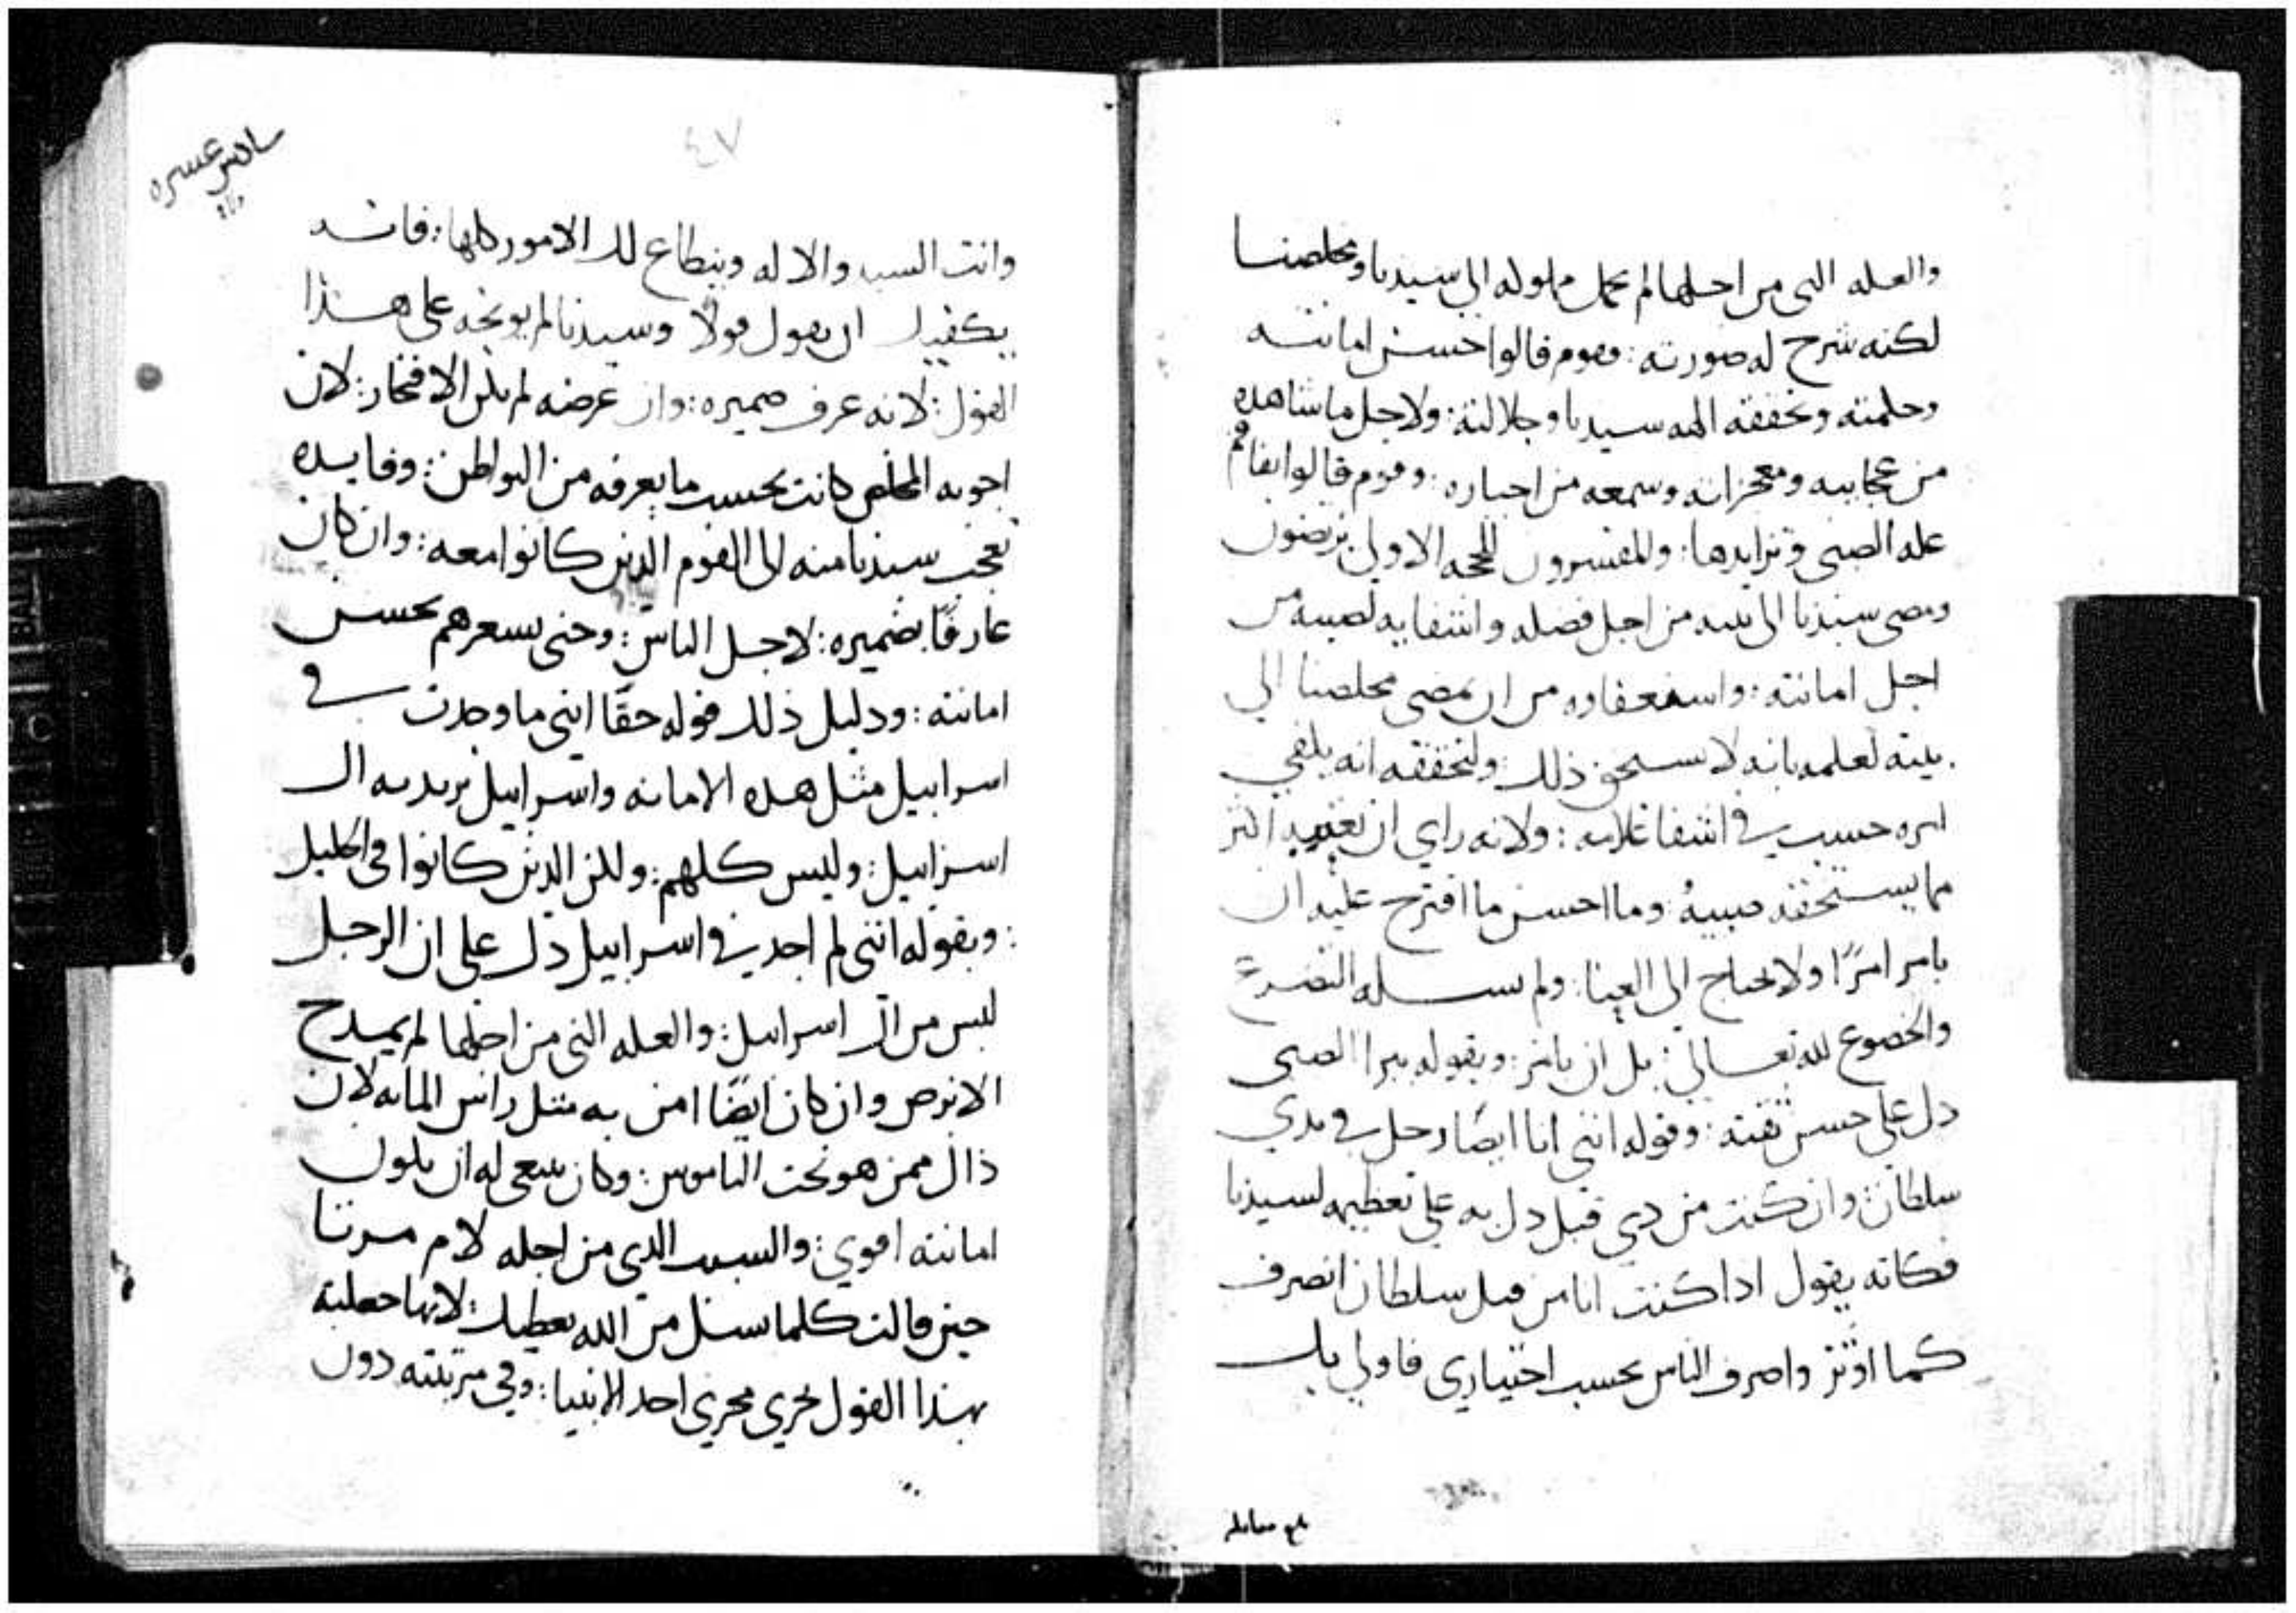 والعله التى من اجلها لم يحمل مملوكه الي سيدنا ومخلصنا
لكنه شرح له صورته : فقوم قالوا حسن امانته
وحكمته وتحققه الهه سيدنا وجلالته : ولاجل ما شاهده
من عجايبه ومعجزاته وسمعه من اخباره : وقوم قالوا
عله الصبى وتزايدها : والمفسرون للحجه الاولى يرتضون
ومضى سيدنا الى بيته من اجل فضله واشفايه لصبيه من
اجل امانته : واستعفاوه من ان يمضى مخلصنا الي
بيته لعلمه بانه لا يستحق ذلك : ولتحققه انه يكفي
امره حسب في اشفا غلامه : ولانه راي ان اكثر
مما يستحقه صبيهُ : وما احسن ما اقترح عليه ان
يامر امرًا ولا يحتاج الى العنا : ولم يسله التضرع
والخضوع لله تعالي : بل ان يامر : وبقوله يبرا الصبى
دل على حسن ثقته : وقوله انني انا ايضًا رجل في يدي
سلطان وان كنت من ذي قبل دل به علي تعظيمه لسيدنا
فكانه يقول اذا كنت انا من قبل سلطان اتصرف
كما اوثر واصرف الناس بحسب اختياري فاولي بك
بلغ مقابله
سادس عشره
٤٧
وانت السيد والاله وينطاع لك الامور كلها : فانه
يكفيك ان تقول قولاً وسيدنا لم يوبخه على هذا
القول : لانه عرف ضميره : وان غرضه لم يكن الافتخار : لان
اجوبه المخلص كانت بحسب ما يعرفه من البواطن : وفايده
تعجب سيدنا منه الى القوم الذين كانوا معه : وان كان
عارفًا بضميره : لاجل الناس : وحتى يشعرهم بحسن
امانته : ودليل ذلك قوله حقًا انني ما وجدت في
اسراييل مثل هده الامانه واسراييل يريد به ال
اسراييل : وليس كلهم : ولكن الدين كانوا فى الجليل
: وبقوله انني لم اجد في اسراييل دل على ان الرجل
ليس من ال اسراييل : والعله التى من اجلها لم يمدح
الابرص وان كان ايضًا امن به مثل راس المايه لان
ذاك ممن هو تحت الناموس : وكان ينبغى له ان يكون
امانته اقوي : والسبب الدي من اجله لام مرتا
حين قالت كلما تسل من الله يعطيك : لانها جعلته
بهذا القول يجري مجري احد الانبيا : وفي مرتبته دون